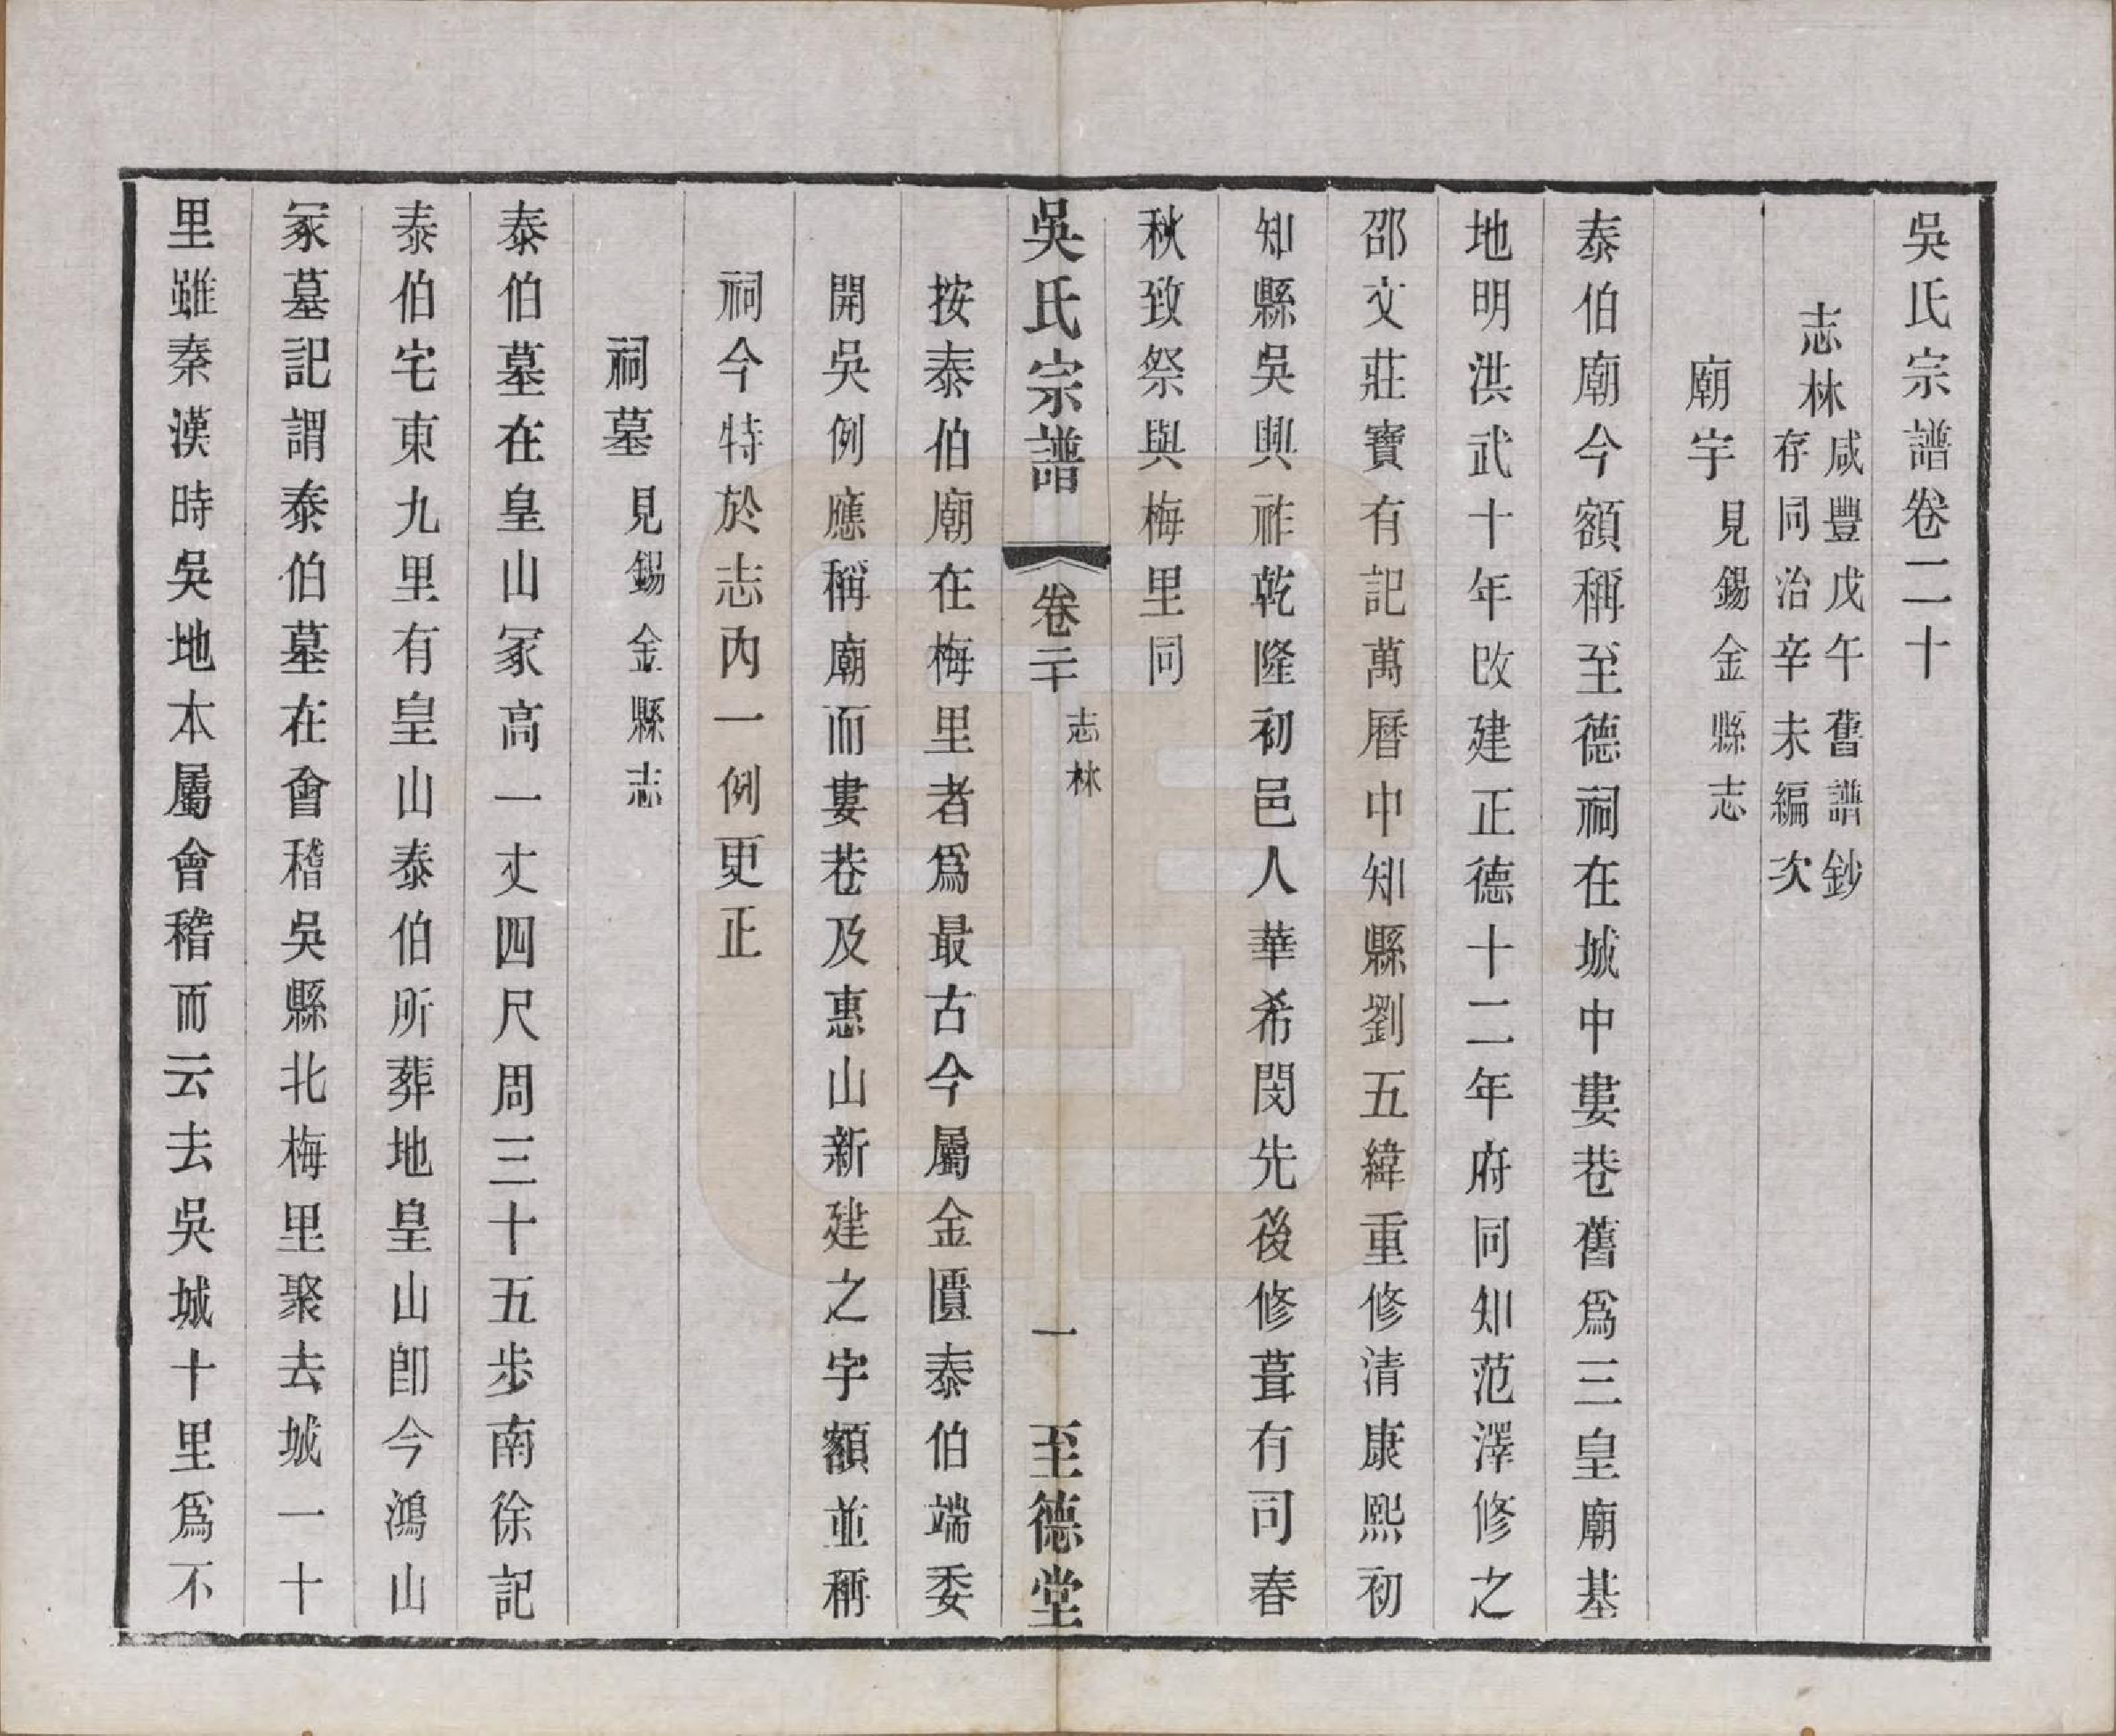 吳氏宗譜卷二十
志林咸豐戊午舊譜鈔
存同治辛未編次
廟宇見錫金縣志
泰伯廟今額稱至德祠在城中婁巷舊爲三皇廟基
地明洪武十年改建正德十二年府同知范澤修之
邵文莊寶有記萬曆中知縣劉五緯重修清康熙初
知縣吳興祚乾隆初邑人華希閔先後修葺有司春
秋致祭與梅里同
吳氏宗譜 卷二十 志林 一 至德堂
按泰伯廟在梅里者爲最古今屬金匱泰伯端委
開吳例應稱廟而婁巷及惠山新建之宇額並稱
祠今特於志內一例更正
祠墓見錫金縣志
泰伯墓在皇山冢高一丈四尺周三十五步南徐記
泰伯宅東九里有皇山泰伯所葬地皇山卽今鴻山
冢墓記謂泰伯墓在會稽吳縣北梅里聚去城一十
里雖秦漢時吳地本屬會稽而云去吳城十里爲不